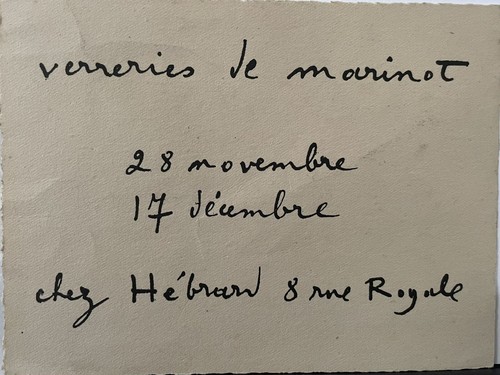 verreries de marinot
28 novembre
17 décembre
chez Hébrard 8 rue Royale